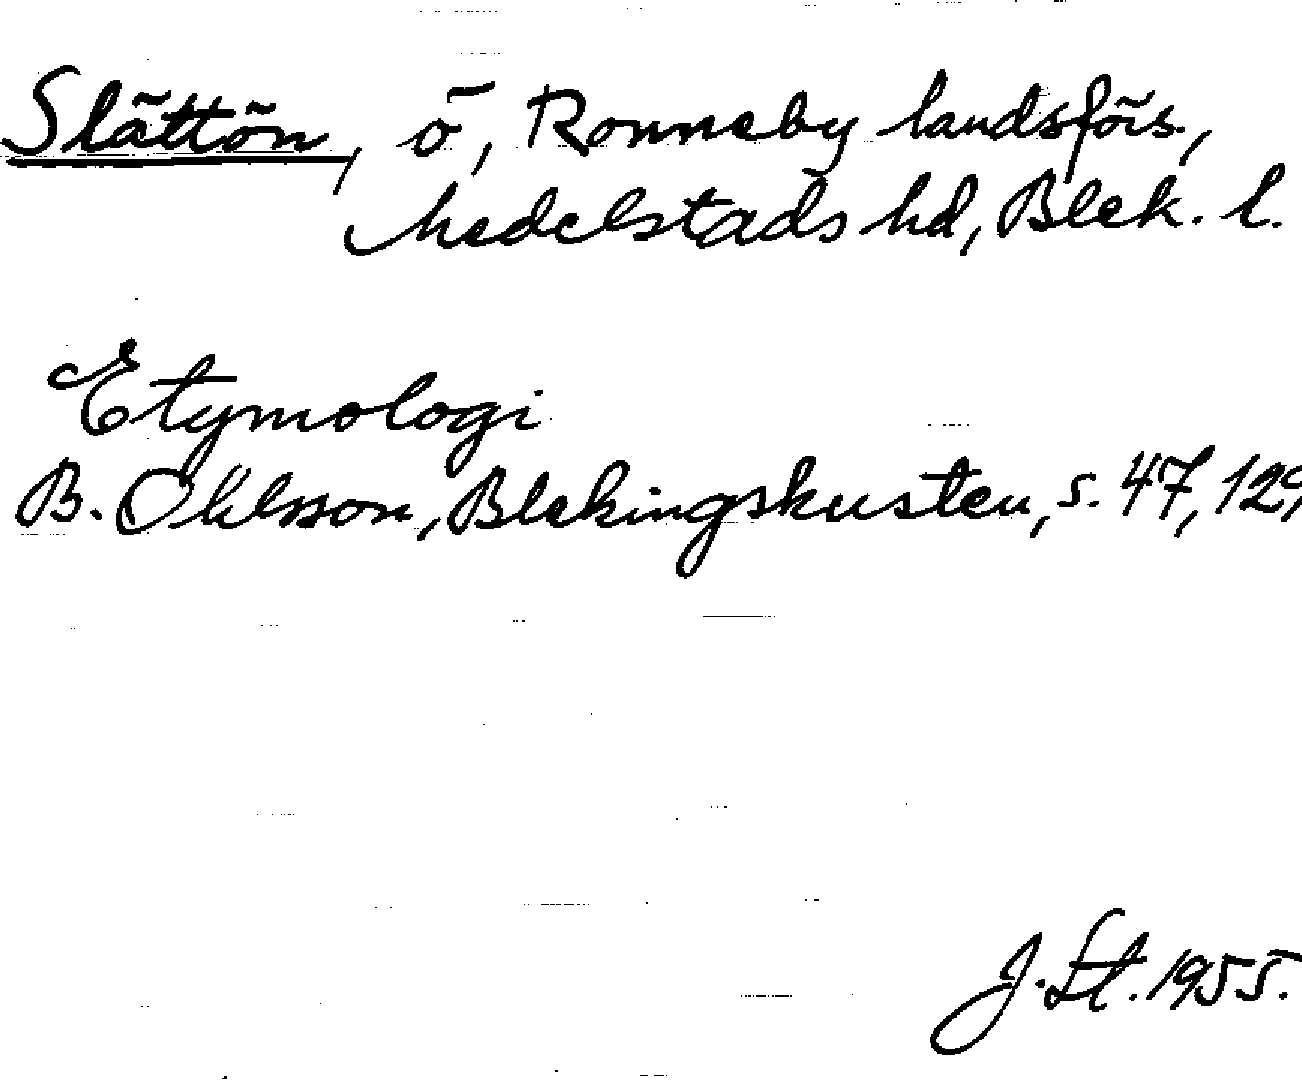 Slättön, ö, Ronneby landsförs.,
Medelstads hd, Blek. l.
Etymologi
B. Ohlsson, Blekingskusten, s. 47, 129
J. St. 1955.